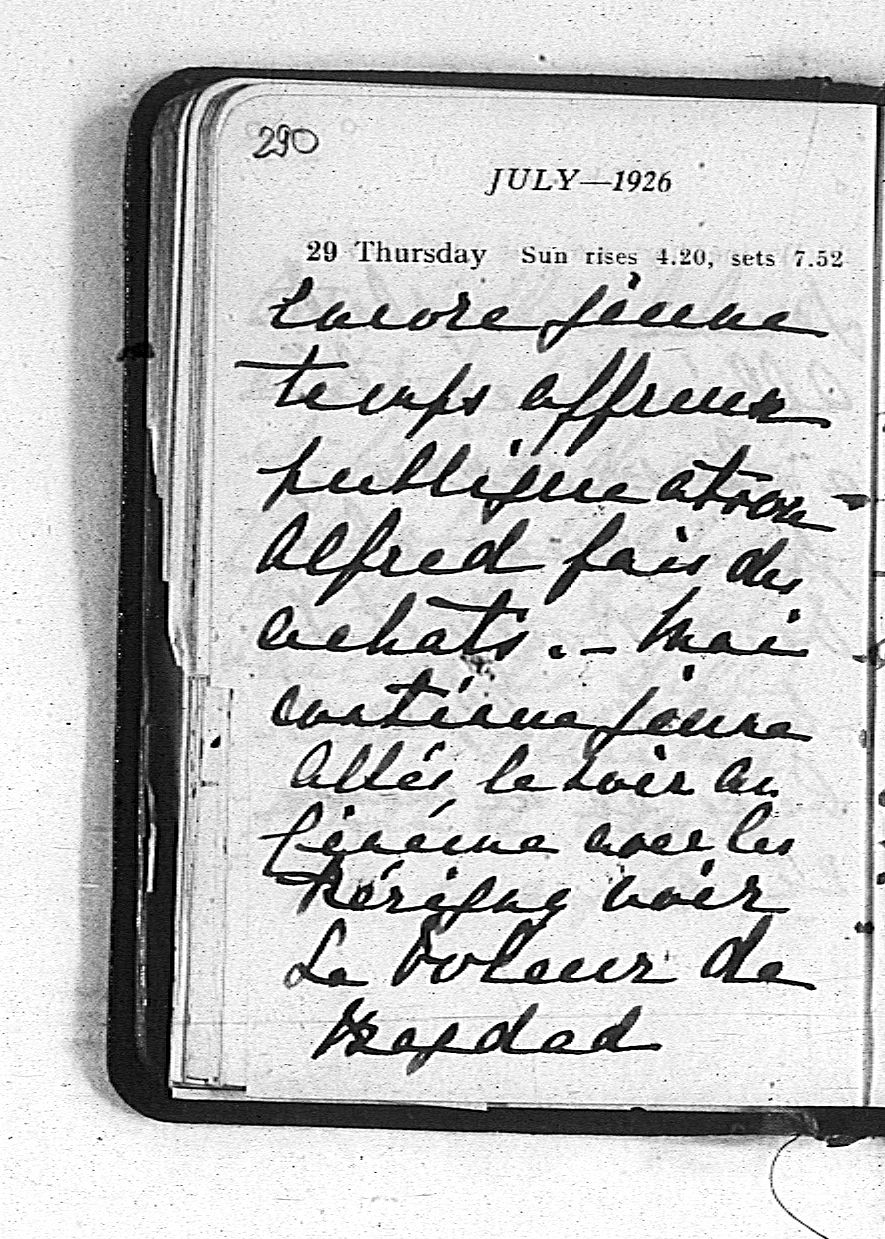 290
JULY—1926
29 Thursday Sun rises 4.20, sets 7.52
Encore jeune
temps affreux
publique atroce
Alfred fais des
achats. – Moi
continue jeune
Allés le soir au
Cinéma avec les
voir
Le Voleur de
Bagdad